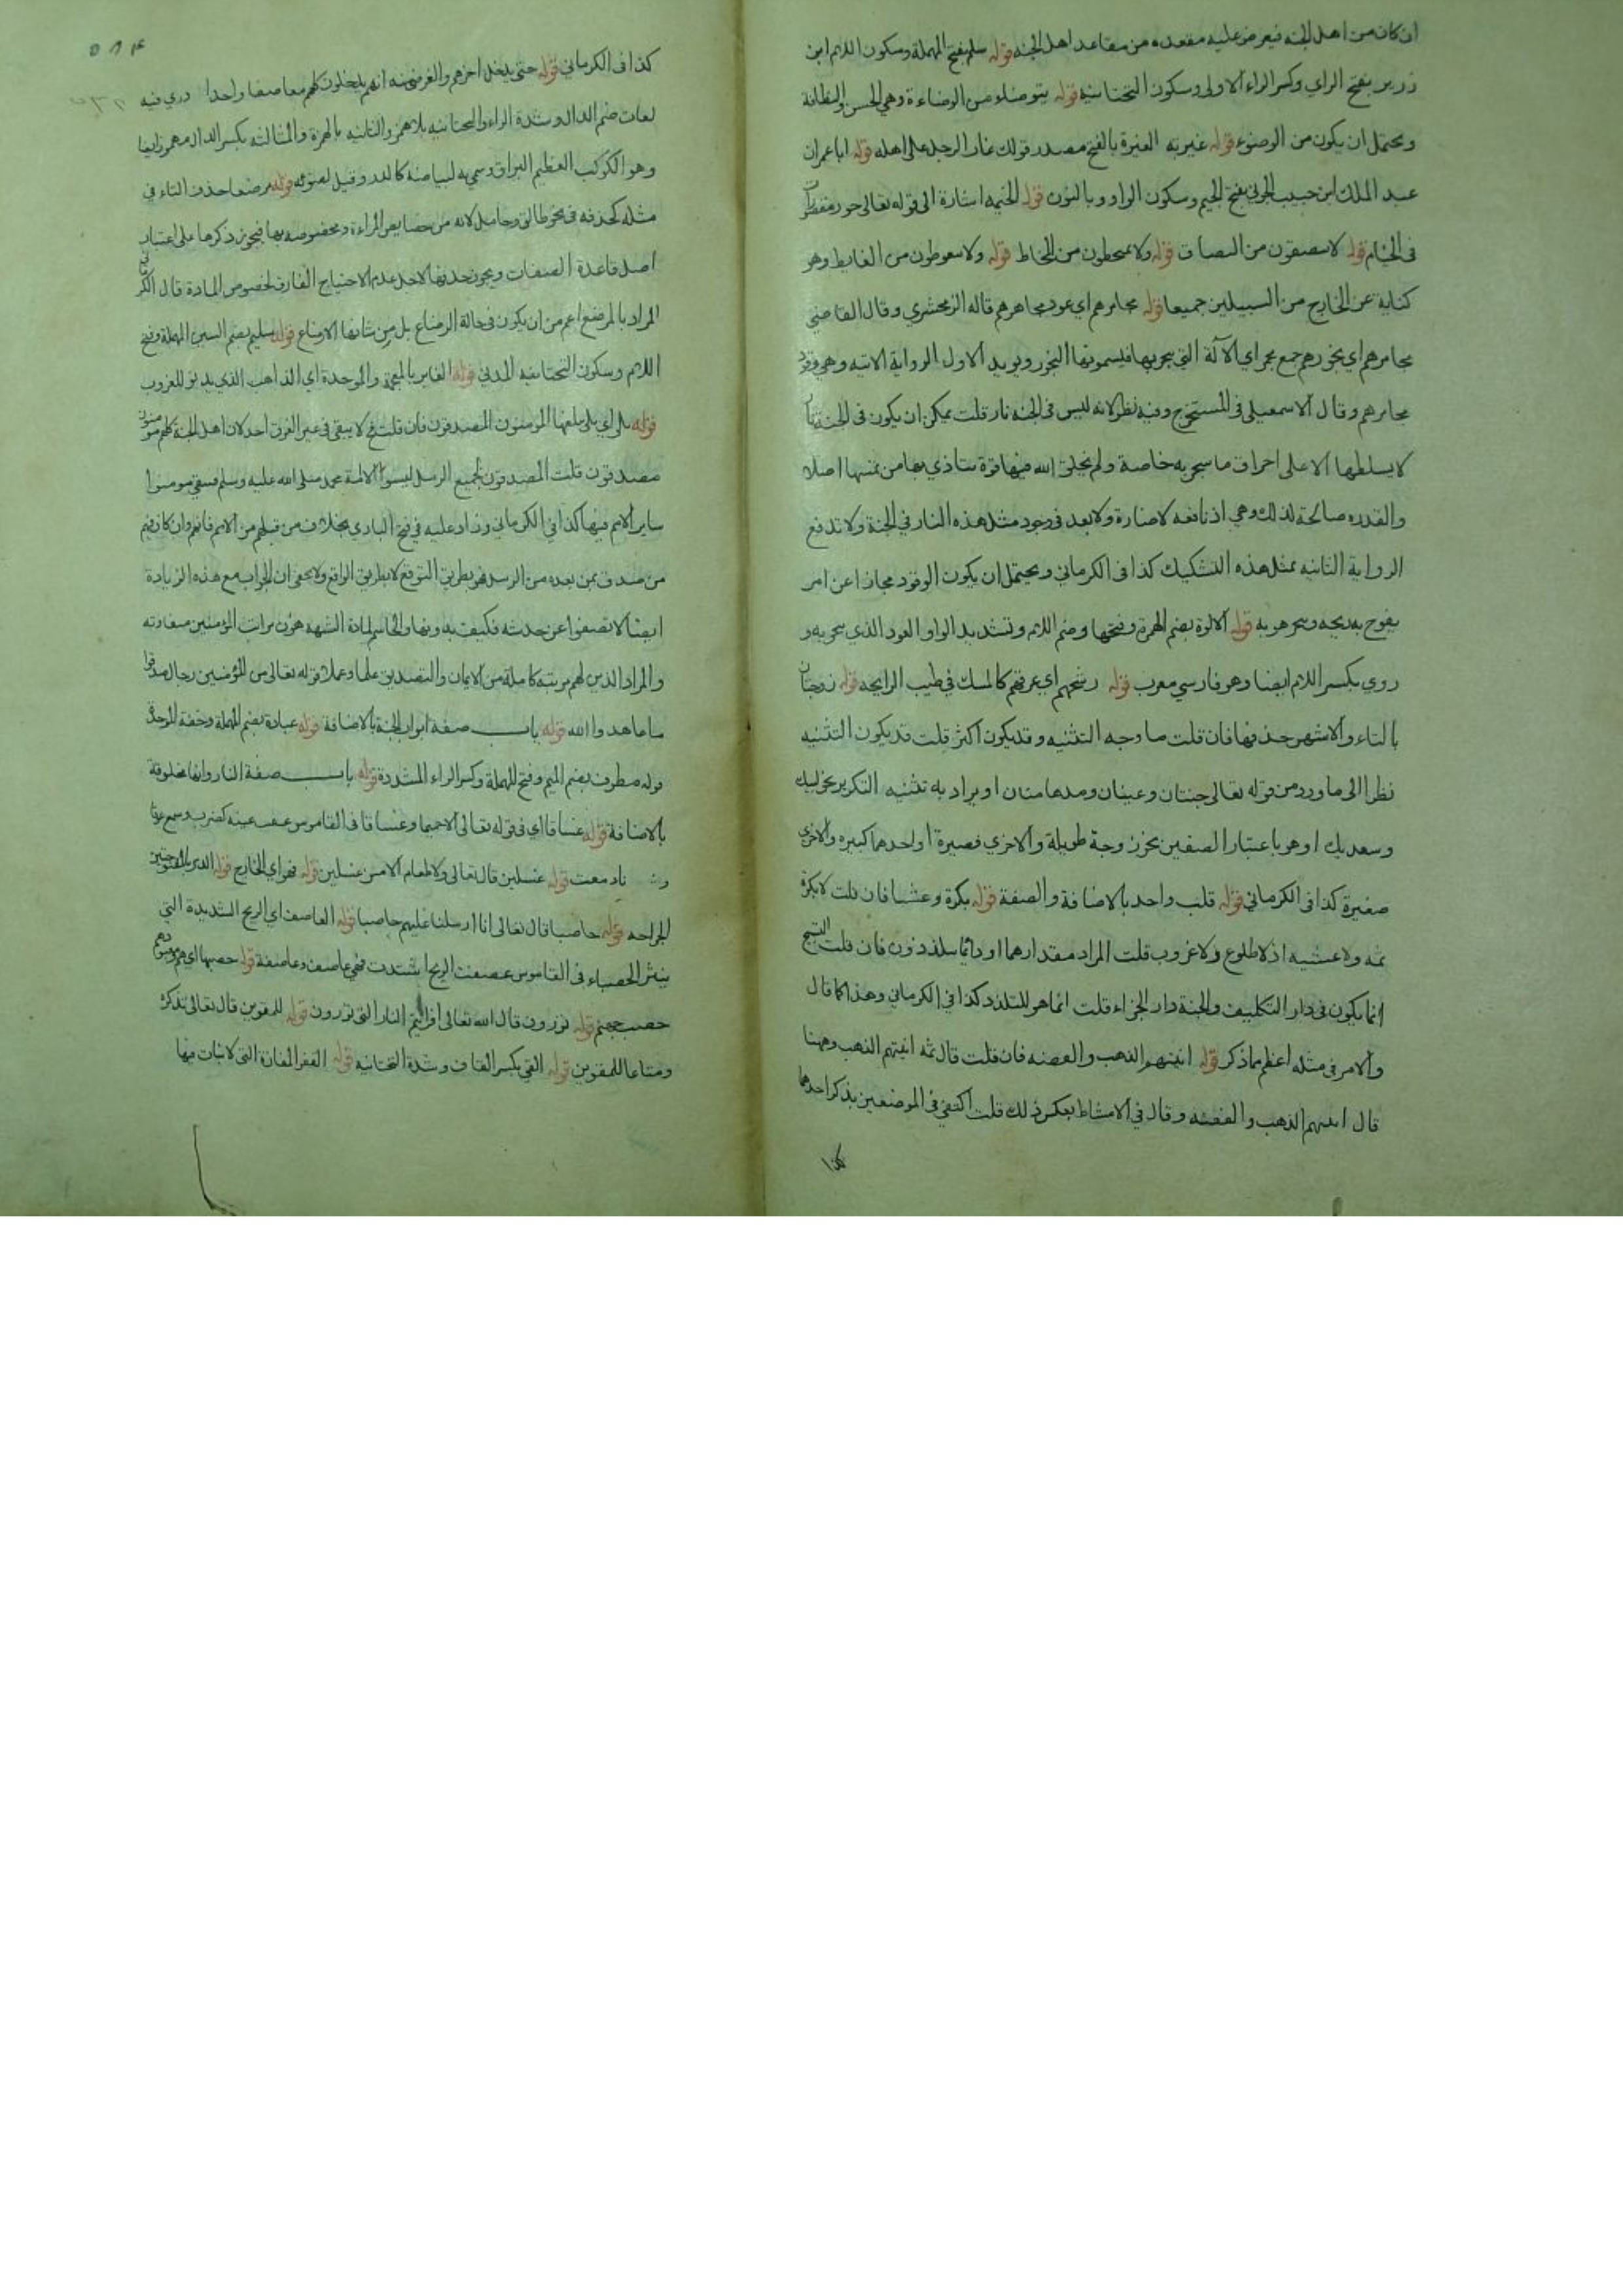 ان كان من اهل الجنه فيعرض عليه مقعده من مقاعد اهل الجنه قوله سلم بفتح المهملة وسكون اللام ابن
زرير بفتح الراي وكسر الراء الاولى وسكون التحتانيه قوله يتوضاء من الوضاءة وهي الحسن والنظافة
ويحتمل ان يكون من الوضوء قوله غيرته الغيرة بالفتح مصدر قولك غار الرجل على اهله قوله ابا عمران
عبد الملك ابن حبيب الجوني بفتح الجيم وسكون الواو وبالنون قوله الخيمه اشارة الى قوله تعالى حور مقصورات
في الخيام قوله لا يبصقون من البصاق قوله ولا يمتخطون من المخاط قوله ولا يتغوطون من الغايط وهو
كناية عن الخارج من السبيلين جميعا قوله مجامرهم اي عود مجامرهم قاله الزمخشري وقال القاضي
مجامرهم اي بخورهم جمع مجمر اي الآلة التي يتبخر بها فيسمونها البخور ويويد الاول الرواية الاتيه وهي وقود
مجامرهم وقال الاسمعيلي في المستخرج وفيه نظر لانه ليس في الجنه نار قلت يمكن ان يكون في الجنة نار
لا يسلطها الا على احراق ما يتبخر به خاصة ولم يخلق الله فيها قوة يتاذي بها من يمسها اصلا
والقدره صالحة لذلك وهي اذ نافعه لا ضارة ولا بعد في وجود مثل هذه النار في الجنة ولا تدفع
الرواية الثانيه بمثل هذه التشكيك كذا في الكرماني ويحتمل ان يكون الوقود مجازا عن امر
يفوح به ريحه وسر هو به قوله الالوة بضم الهمزة وفتحها وضم اللام وتشديد الواو العود الذي يتبخر به و
روي بكسر اللام ايضا وهو فارسي معرب قوله رشحهم اي عرقهم كالمسك في طيب الرايحه قوله زوجتان
بالتاء والاشهر حذفها فان قلت ما وجه التثنيه وقد يكون اكثر قلت قد يكون التثنيه
نظرا الى ما ورد من قوله تعالى جنتان وعينان ومدهامتان او يراد به تثنيه التكرير نحو لبيك
وسعديك او هو باعتبار الصنفين نحو زوجة طويلة والاخري قصيرة او احدهما كبيره والاخري
صغيرة كذا في الكرماني قوله قلب واحد بالاضافة والصفة قوله بكرة وعشيا فان قلت لا بكرة
ثمه ولا عشيه اذ لا طلوع ولا غروب قلت المراد مقدارهما او دائما يتلذذون فان قلت التسبيح
انما يكون في دار التكليف والجنة دار الجزاء قلت انما هو للتلذذ كذا في الكرماني وهذا كما قال
والامر في مثله اعظم مما ذكر قوله انيتهم الذهب والفضه فان قلت قال ثمه انيتهم الذهب وههنا
قال انيتهم الذهب والفضه وقال في الامشاط بعكس ذلك قلت اكتفي في الموضعين بذكر احدهما
كذا
٥١٤
كذا في الكرماني قوله حتى يدخل اخرهم والغرض منه انهم يدخلون كلهم معا صفا واحدا دري فيه
لغات ضم الدال وشدة الراء والتحتانيه بلا همز والثانيه بالهمزة والثالثه بكسر الدال مهموز ايضا
وهو الكوكب العظيم البراق وسمي به لبياضه كالدر وقيل لضوئه قوله مرضعا حذف التاء في
مثله كحذفه في نحو طالق وحامل لانه من خصايص المراءة ومخصوصه بها فيجوز ذكرها على اعتبار
اصل قاعدة الصفات ويجوز حذفها لاجل عدم الاحتياج الفارق لخصوص المادة قال الكرماني
المراد بالمرضع اعم من ان يكون في حالة الرضاع بل من شانها الارضاع قوله سليم بضم السين المهملة وفتح
اللام وسكون التحتانيه المدني قوله الغابر بالمعجمة والموحدة اي الذاهب الذي يدنو للغروب
قوله بلى اي بلى يبلغها المومنون المصدقون فان قلت فح لا يبقى في غير الغرف احد لان اهل الجنة كلهم مومنون
مصدقون قلت المصدقون لجميع الرسل ليسوا الا امة محمد صلى الله عليه وسلم فبقي مومنوا
ساير الامم فيها كذا في الكرماني وزاد عليه في فتح الباري بخلاف من قبلهم من الامم فانهم وان كان فيهم
من صدق بمن بعده من الرسل فهو بطريق التوقع لا بطريق الواقع ولا يخفى ان الجواب مع هذه الزيادة
ايضا لا تصفوا عن خدشه فكيف بدونها والحاسم لمادة الشبهه هو ان مراتب المومنين متفاوته
والمراد الذين لهم مرتبه كاملة من الايمان والتصديق علما وعملا قوله تعالى من المؤمنين رجال صدقوا
ما عاهدوا الله قوله باب صفة ابواب الجنة بالاضافة قوله عبادة بضم المهملة وخفة الموحدة
قوله مطرف بضم الميم وفتح المهملة وكسر الراء المشددة قوله باب صفة النار وانها مخلوقة
بالاضافة قوله غساقا اي في قوله تعالى الا حميما وغساقا في القاموس غسقت عينه كضرب وسمع غسوقا
قوله غسلين قال تعالى ولا طعام الا من غسلين قوله فهو اي الخارج قوله الدبر بالمفتوحتين
الجراحه قوله حاصبا قال تعالى انا ارسلنا عليهم حاصبا قوله العاصف اي الريح الشديدة التي
ينثر الحصباء في القاموس عصفت الريح اشتدت فهي عاصف وعاصفة قوله حصبها اي هم
حصب جهنم قوله تورون قال الله تعالى افرايتم النار التي تورون قوله للمقوين قال تعالى تذكرة
ومتاعا للمقوين قوله القي بكسر القاف وشدة التحتانيه قوله القفر المفازة التي لا نبات فيها